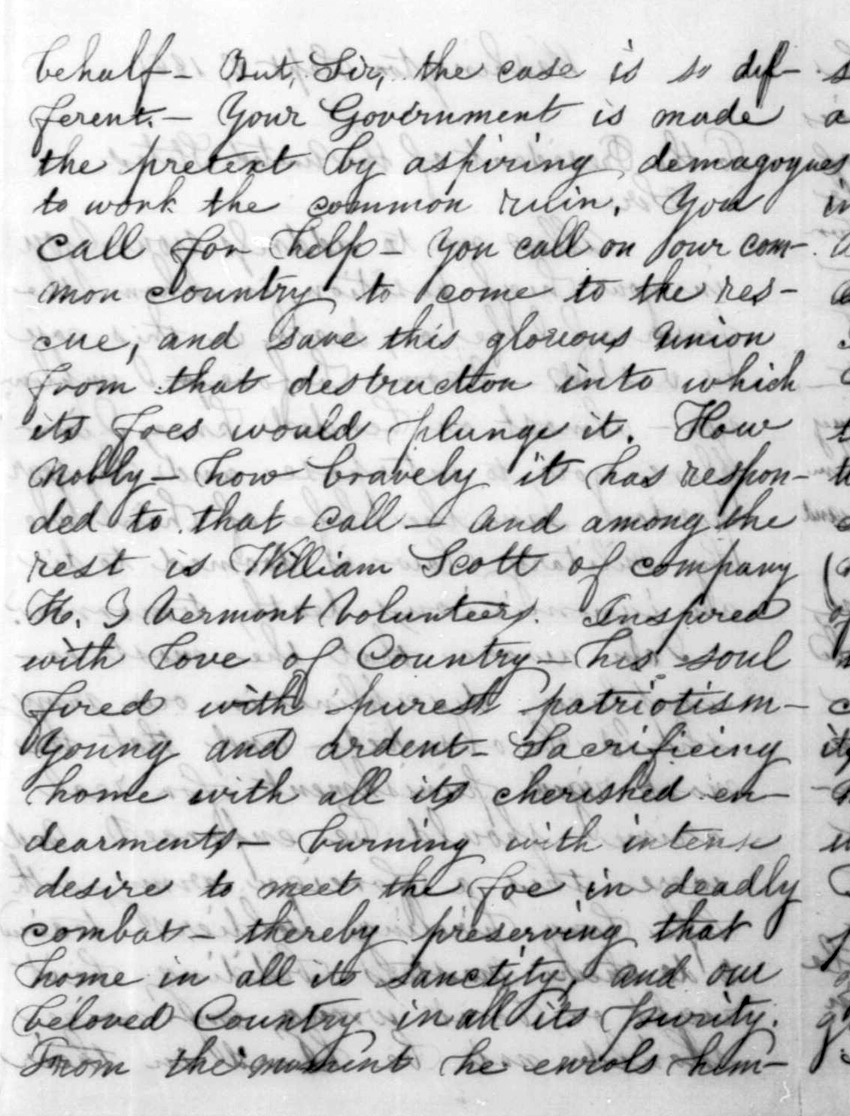 behalf – But, Sir, the case is so dif–
ferent. – Your Government is made
the pretext by aspiring demagogues
to work the common ruin. You
call for help – You call on our com–
mon country to come to the res–
cue, and save this glorious Union
from that destruction into which
its foes would plunge it. How
nobly – how bravely it has respon–
ded to that call – and among the
rest is William Scott of company
K. 3 Vermont Volunteers. Inspired
with love of Country – his soul
fired with purest patriotism –
Young and ardent – Sacrificing
home with all its cherished en–
dearments – burning with intense
desire to meet the foe in deadly
combat – thereby preserving that
home in all its sanctity, and our
beloved Country in all its purity.
From the moment he enrols him–